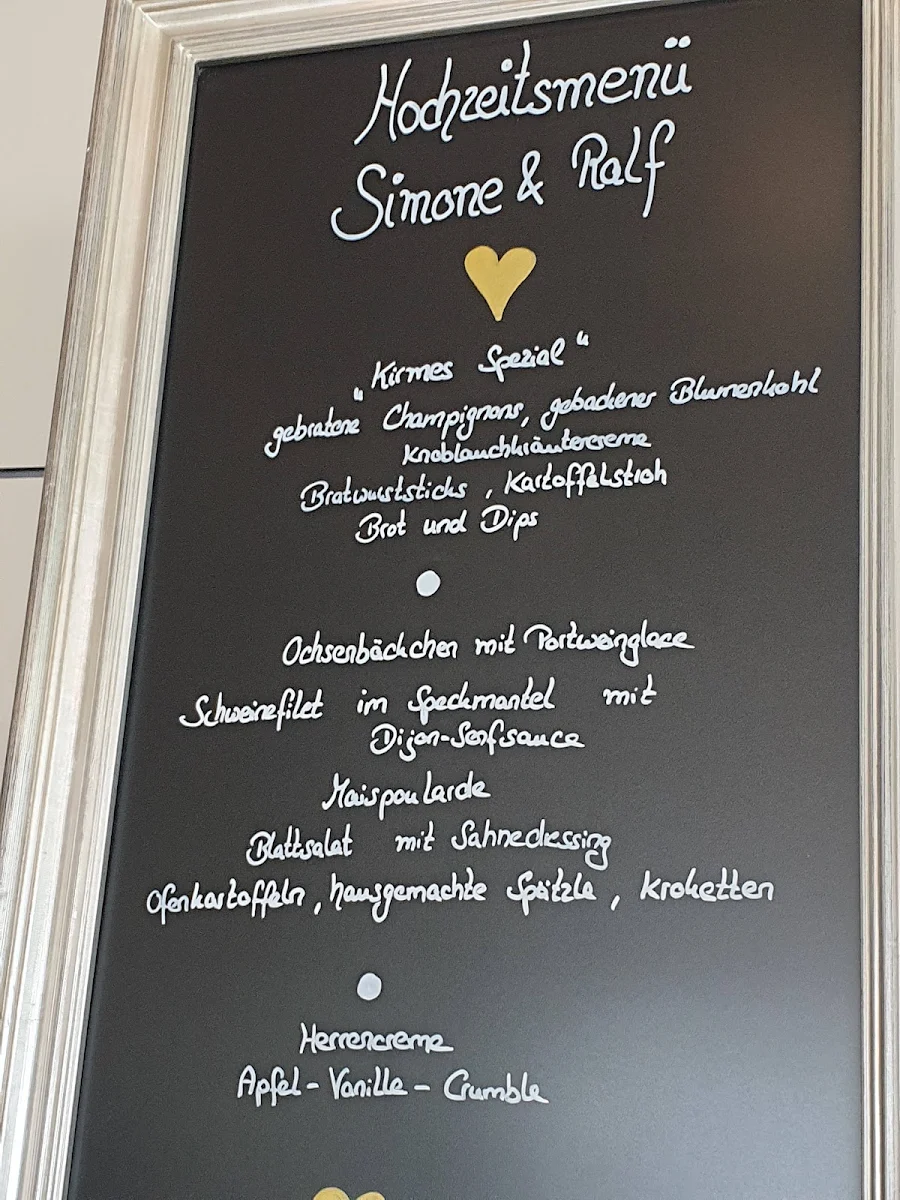 Hochzeitsmenü
Simone & Ralf
„Kirmes Spezial“
gebratene Champignons, gebackener Blumenkohl
Knoblauchkräutercreme
Bratwurststicks, Kartoffelstroh
Brot und Dips
Ochsenbäckchen mit Portweinglace
Schweinefilet im Speckmantel mit
Dijon-Senfsauce
Maispoularde
Blattsalat mit Sahnedressing
Ofenkartoffeln, hausgemachte Spätzle, Kroketten
Herrencreme
Apfel-Vanille-Crumble